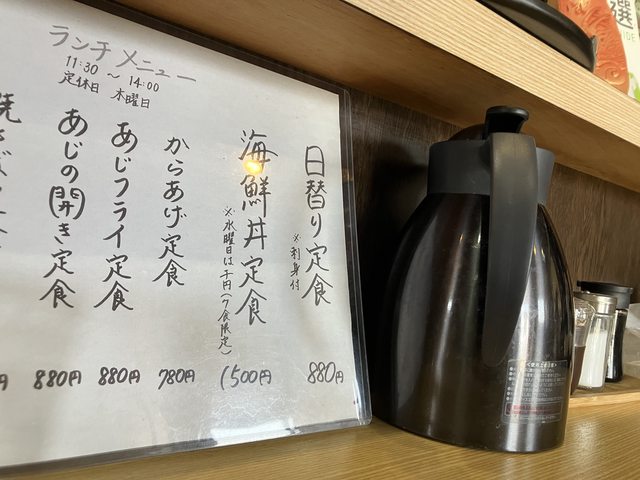 ランチメニュー
11:30 〜 14:00
定休日 木曜日
日替り定食
※刺身付
880円
海鮮丼定食
※水曜日は千円(7食限定)
1500円
からあげ定食
780円
あじフライ定食
880円
あじの(開)き定食
880円
選